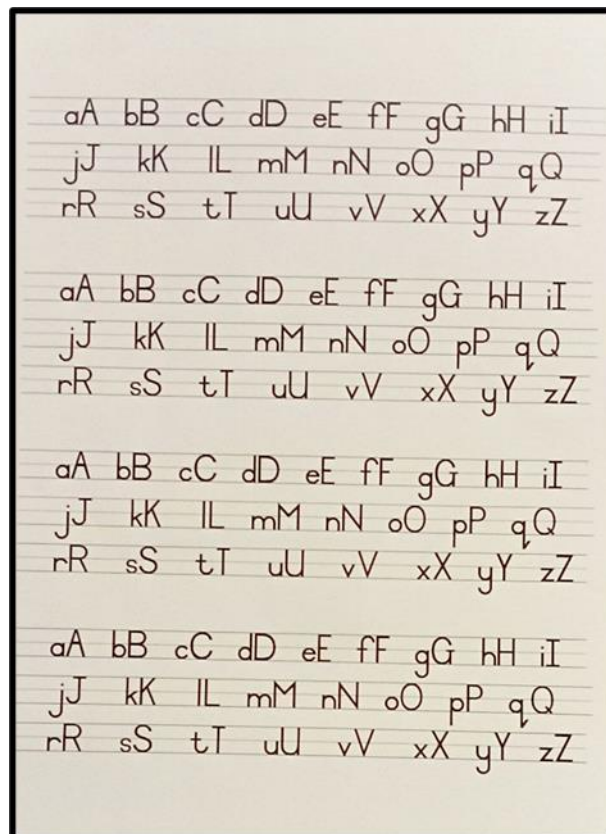 aA bB cC dD eE fF gG hH iI
jJ kK lL mM nN oO pP qQ
rR sS tT uU vV xX yY zZ
aA bB cC dD eE fF gG hH iI
jJ kK lL mM nN oO pP qQ
rR sS tT uU vV xX yY zZ
aA bB cC dD eE fF gG hH iI
jJ kK lL mM nN oO pP qQ
rR sS tT uU vV xX yY zZ
aA bB cC dD eE fF gG hH iI
jJ kK lL mM nN oO pP qQ
rR sS tT uU vV xX yY zZ